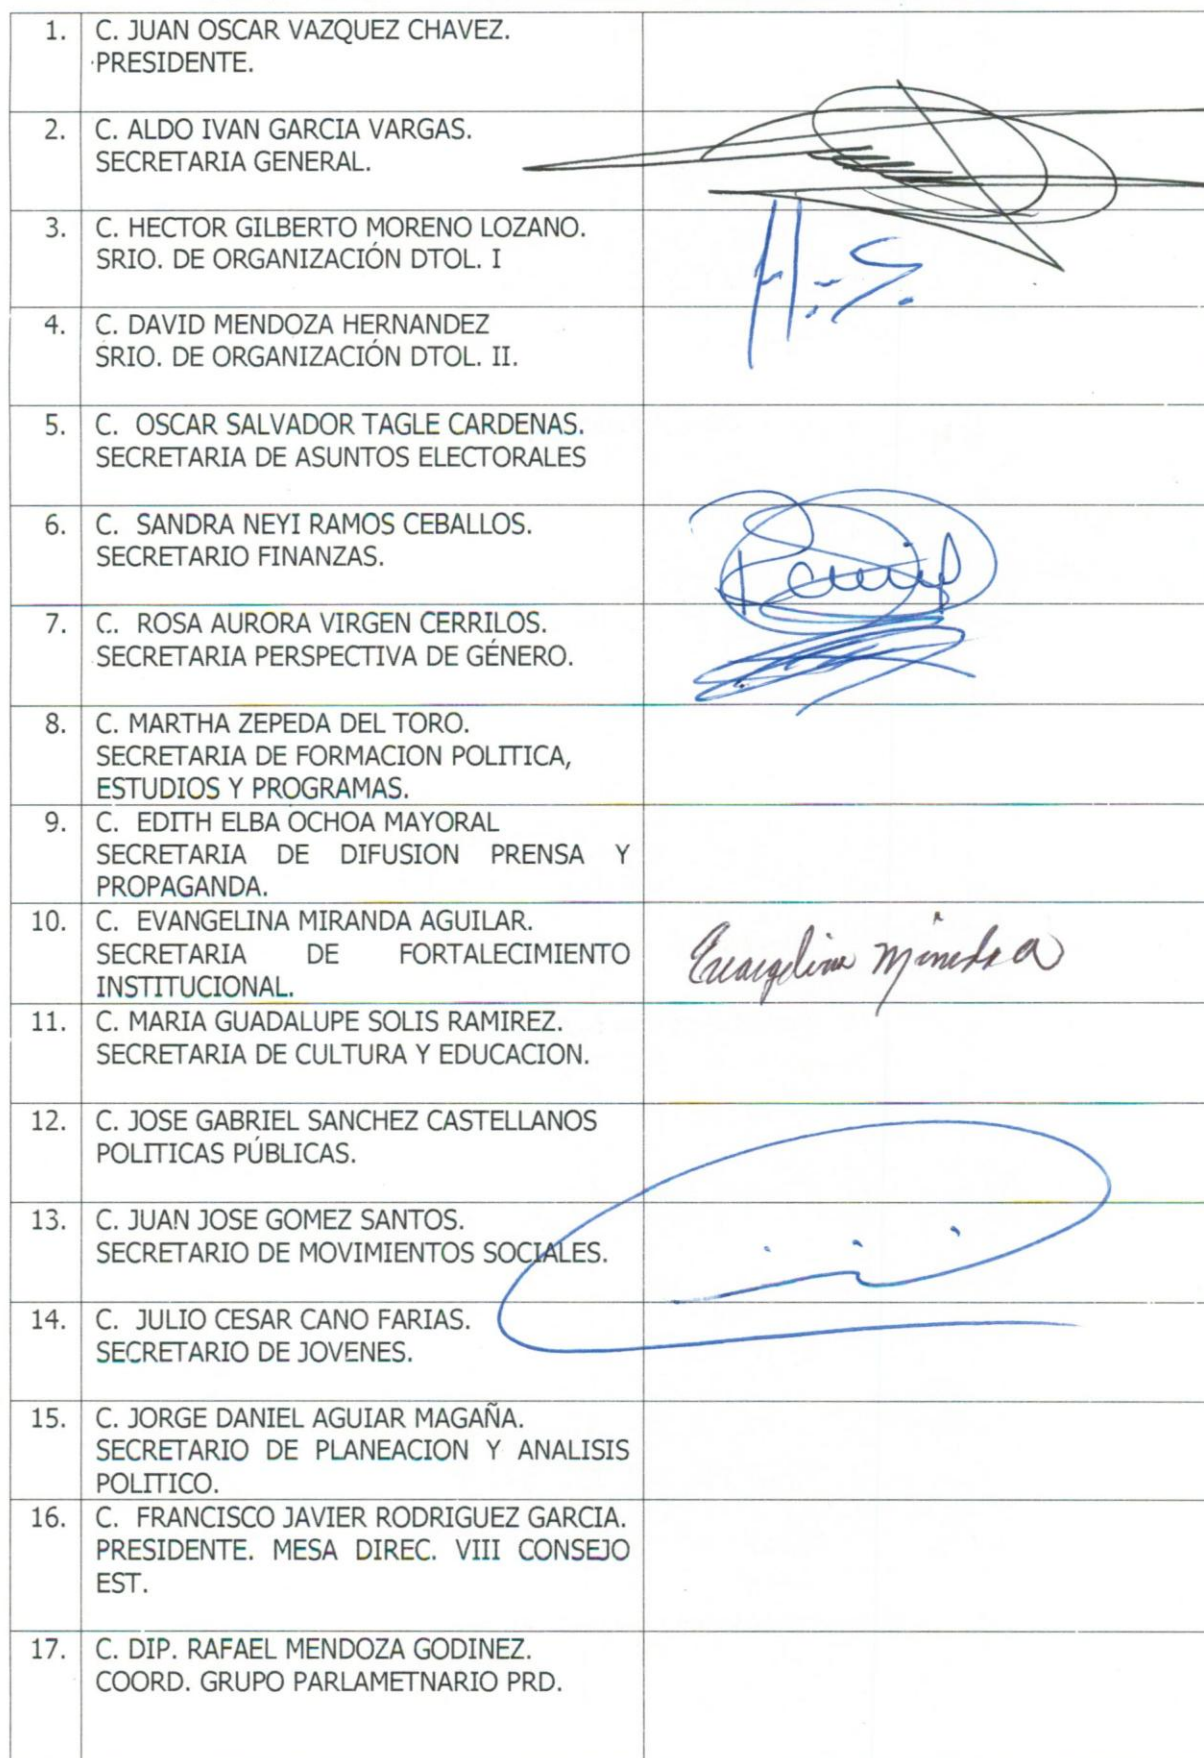 1. C. JUAN OSCAR VAZQUEZ CHAVEZ.
PRESIDENTE.
2. C. ALDO IVAN GARCIA VARGAS.
SECRETARIA GENERAL.
3. C. HECTOR GILBERTO MORENO LOZANO.
SRIO. DE ORGANIZACIÓN DTOL. I
4. C. DAVID MENDOZA HERNANDEZ
SRIO. DE ORGANIZACIÓN DTOL. II.
5. C. OSCAR SALVADOR TAGLE CARDENAS.
SECRETARIA DE ASUNTOS ELECTORALES
6. C. SANDRA NEYI RAMOS CEBALLOS.
SECRETARIO FINANZAS.
7. C. ROSA AURORA VIRGEN CERRILOS.
SECRETARIA PERSPECTIVA DE GÉNERO.
8. C. MARTHA ZEPEDA DEL TORO.
SECRETARIA DE FORMACION POLITICA,
ESTUDIOS Y PROGRAMAS.
9. C. EDITH ELBA OCHOA MAYORAL
SECRETARIA DE DIFUSION PRENSA Y
PROPAGANDA.
10. C. EVANGELINA MIRANDA AGUILAR.
SECRETARIA DE FORTALECIMIENTO
INSTITUCIONAL.
Evangelina Miranda
11. C. MARIA GUADALUPE SOLIS RAMIREZ.
SECRETARIA DE CULTURA Y EDUCACION.
12. C. JOSE GABRIEL SANCHEZ CASTELLANOS
POLITICAS PÚBLICAS.
13. C. JUAN JOSE GOMEZ SANTOS.
SECRETARIO DE MOVIMIENTOS SOCIALES.
14. C. JULIO CESAR CANO FARIAS.
SECRETARIO DE JOVENES.
15. C. JORGE DANIEL AGUIAR MAGAÑA.
SECRETARIO DE PLANEACION Y ANALISIS
POLITICO.
16. C. FRANCISCO JAVIER RODRIGUEZ GARCIA.
PRESIDENTE. MESA DIREC. VIII CONSEJO
EST.
17. C. DIP. RAFAEL MENDOZA GODINEZ.
COORD. GRUPO PARLAMETNARIO PRD.